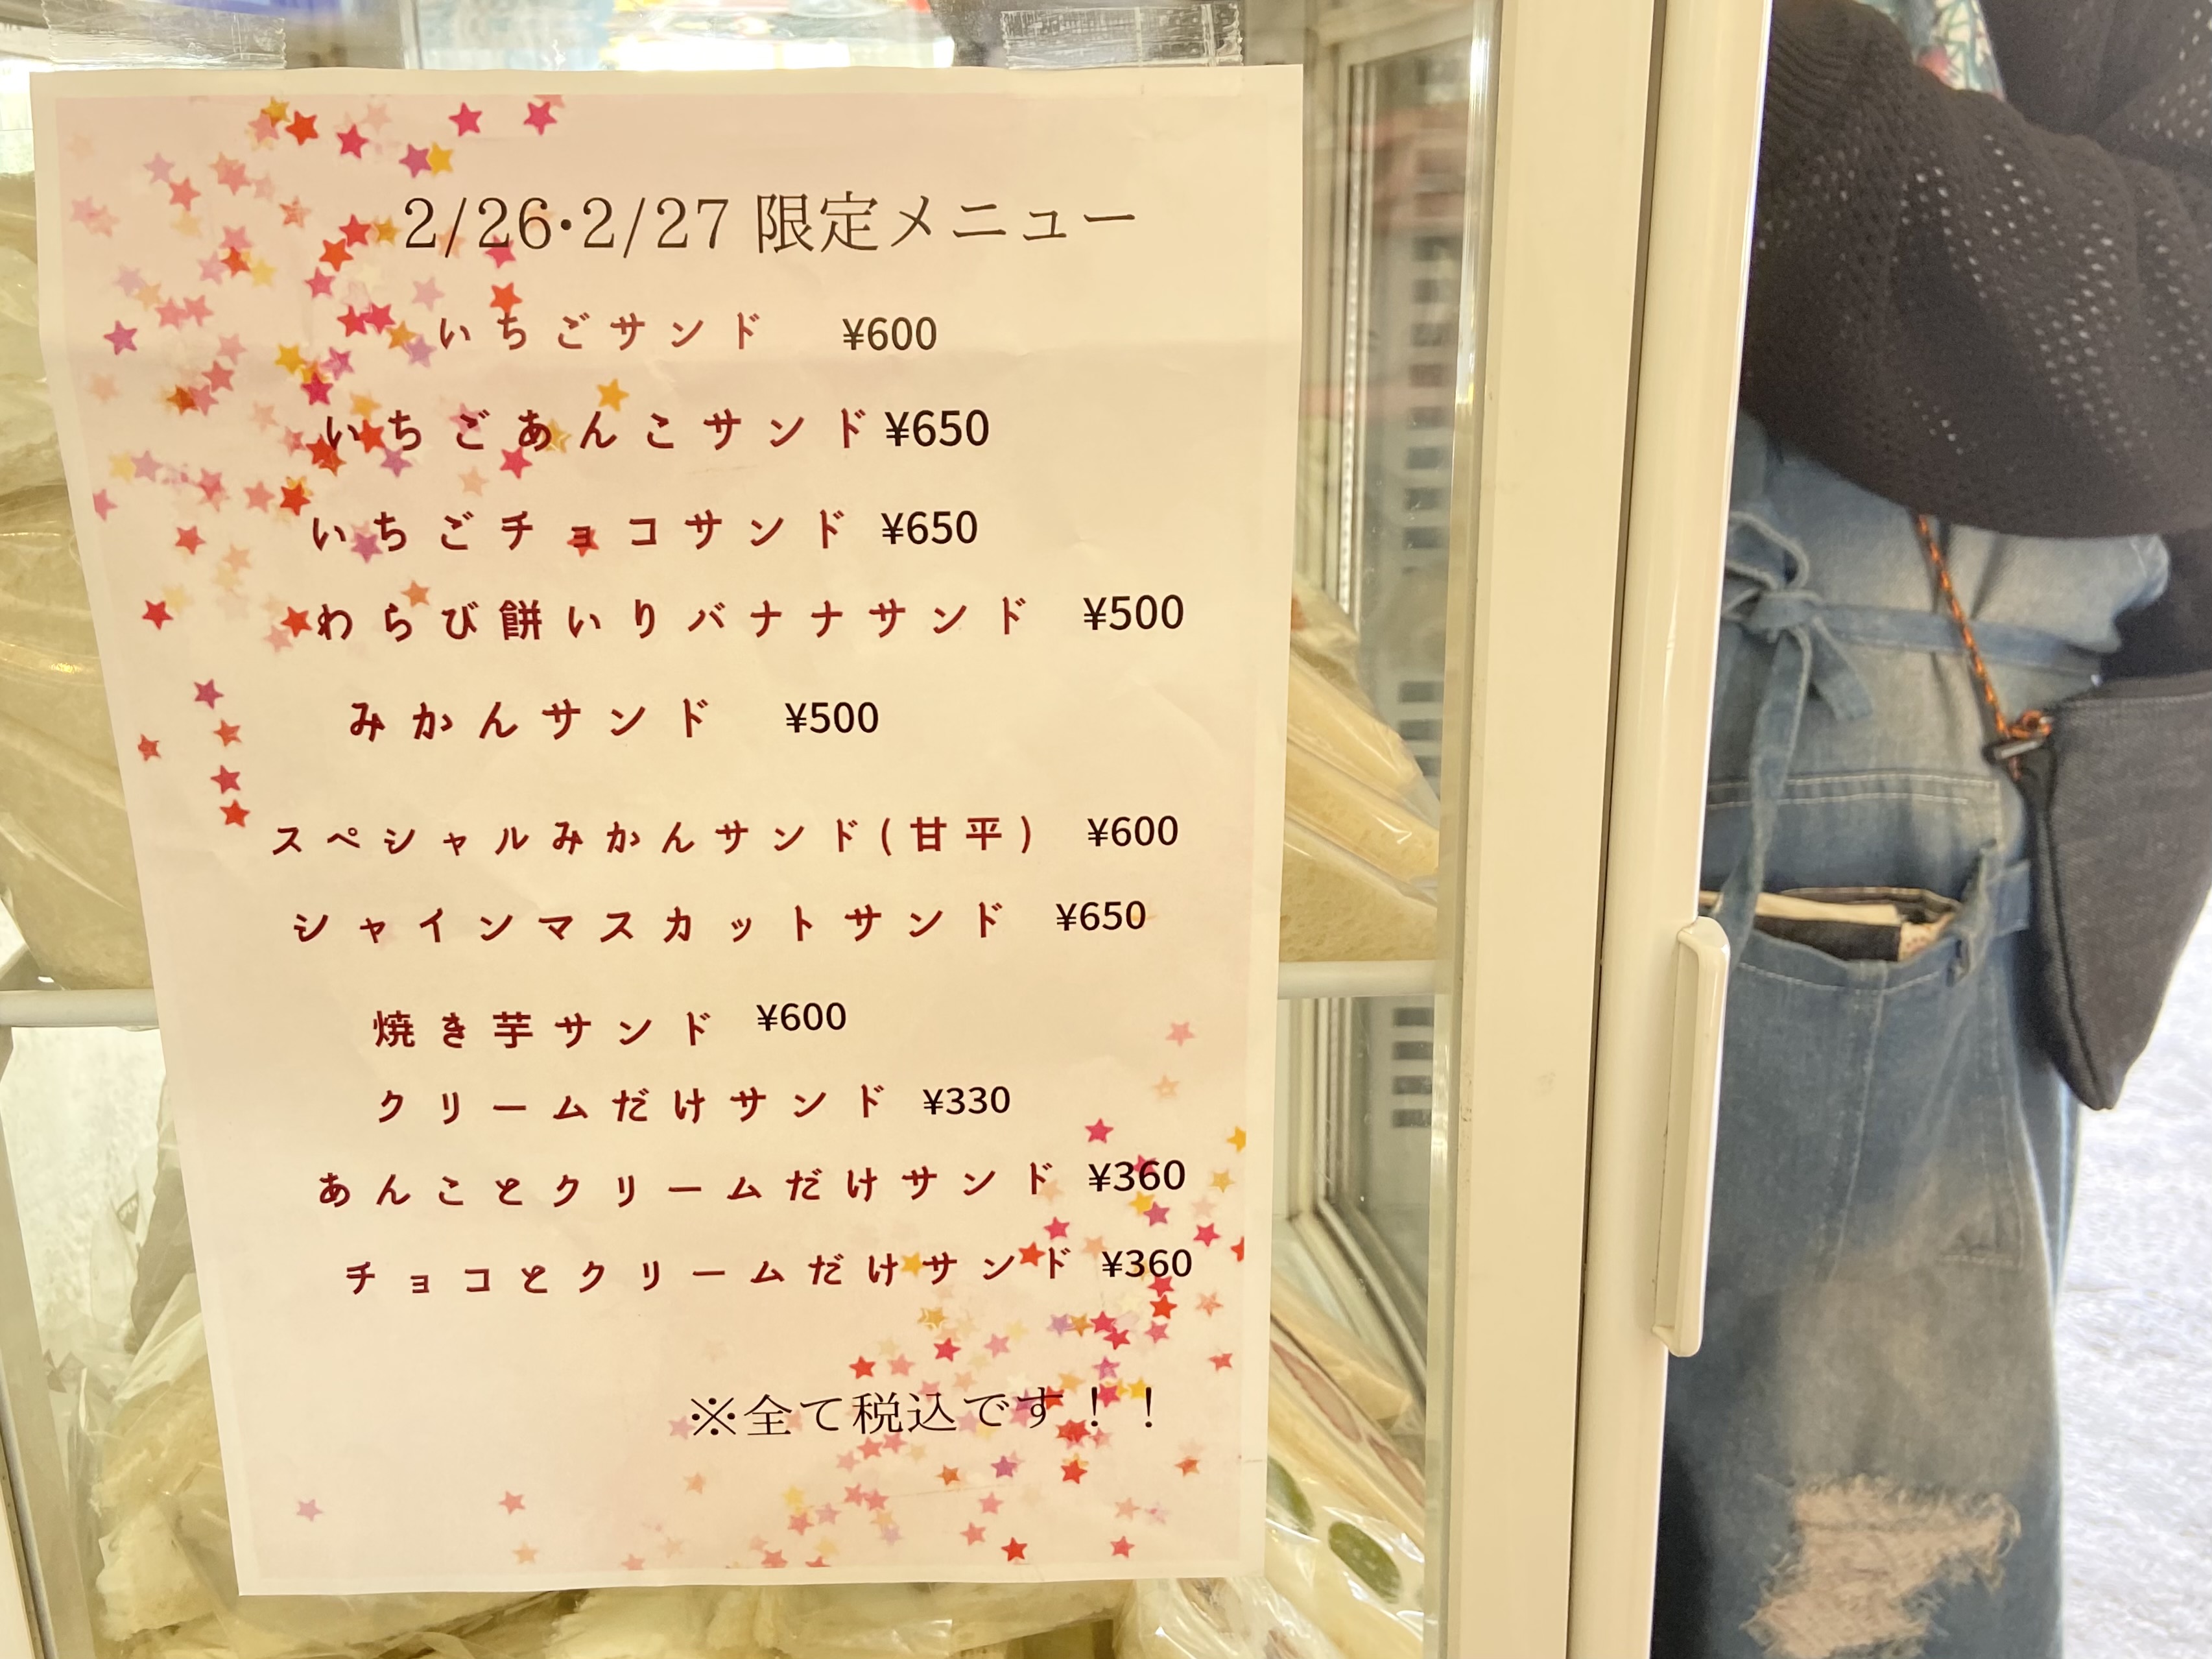 2/26・2/27 限定メニュー
いちごサンド ¥600
いちごあんこサンド ¥650
いちごチョコサンド ¥650
わらび餅いりバナナサンド ¥500
みかんサンド ¥500
スペシャルみかんサンド(甘平) ¥600
シャインマスカットサンド ¥650
焼き芋サンド ¥600
クリームだけサンド ¥330
あんことクリームだけサンド ¥360
チョコとクリームだけサンド ¥360
※全て税込です！！